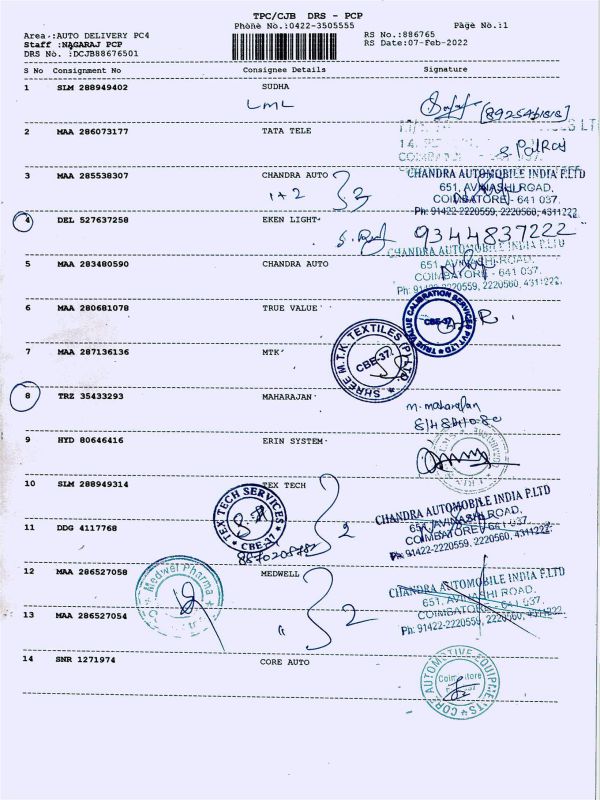 TPC/CJB DRS - PCP
Phone No.:0422-3505555
Page No.:1
Area.:AUTO DELIVERY PC4
Staff :NAGARAJ PCP
DRS No. :DCJB88676501
RS No.:886765
RS Date:07-Feb-2022
S No Consignment No Consignee Details Signature
1 SLM 288949402 SUDHA
LML
2 MAA 286073177 TATA TELE
3 MAA 285538307 CHANDRA AUTO
1+2 3
CHANDRA AUTOMOBILE INDIA P.LTD
651, AVINASHI ROAD,
COIMBATORE - 641 037.
Ph: 91422-2220559, 2220560, 4311222.
4 DEL 527637258 EKEN LIGHT
9344837222
CHANDRA AUTOMOBILE INDIA P.LTD
651, AVINASHI ROAD,
COIMBATORE - 641 037.
Ph: 91422-2220559, 2220560, 4311222.
5 MAA 283480590 CHANDRA AUTO
6 MAA 280681078 TRUE VALUE
TRUE VALUE CALIBRATION SERVICES PVT LTD
CBE-37
7 MAA 287136136 MTK
SHREE M.T.K TEXTILES (P) LTD
CBE-37
8 TRZ 35433293 MAHARAJAN
m. maharajan
9 HYD 80646416 ERIN SYSTEM
10 SLM 288949314 TEX TECH
TEX TECH SERVICES
CBE-37
2
CHANDRA AUTOMOBILE INDIA P.LTD
651, AVINASHI ROAD,
COIMBATORE - 641 037.
Ph: 91422-2220559, 2220560, 4311222.
11 DDG 4117768
12 MAA 286527058 MEDWELL
Medwel Pharma
2
CHANDRA AUTOMOBILE INDIA P.LTD
651, AVINASHI ROAD,
COIMBATORE - 641 037.
Ph: 91422-2220559, 2220560, 4311222.
13 MAA 286527054 "
14 SNR 1271974 CORE AUTO
CORE AUTOMOTIVE EQUIPMENTS
Coimbatore